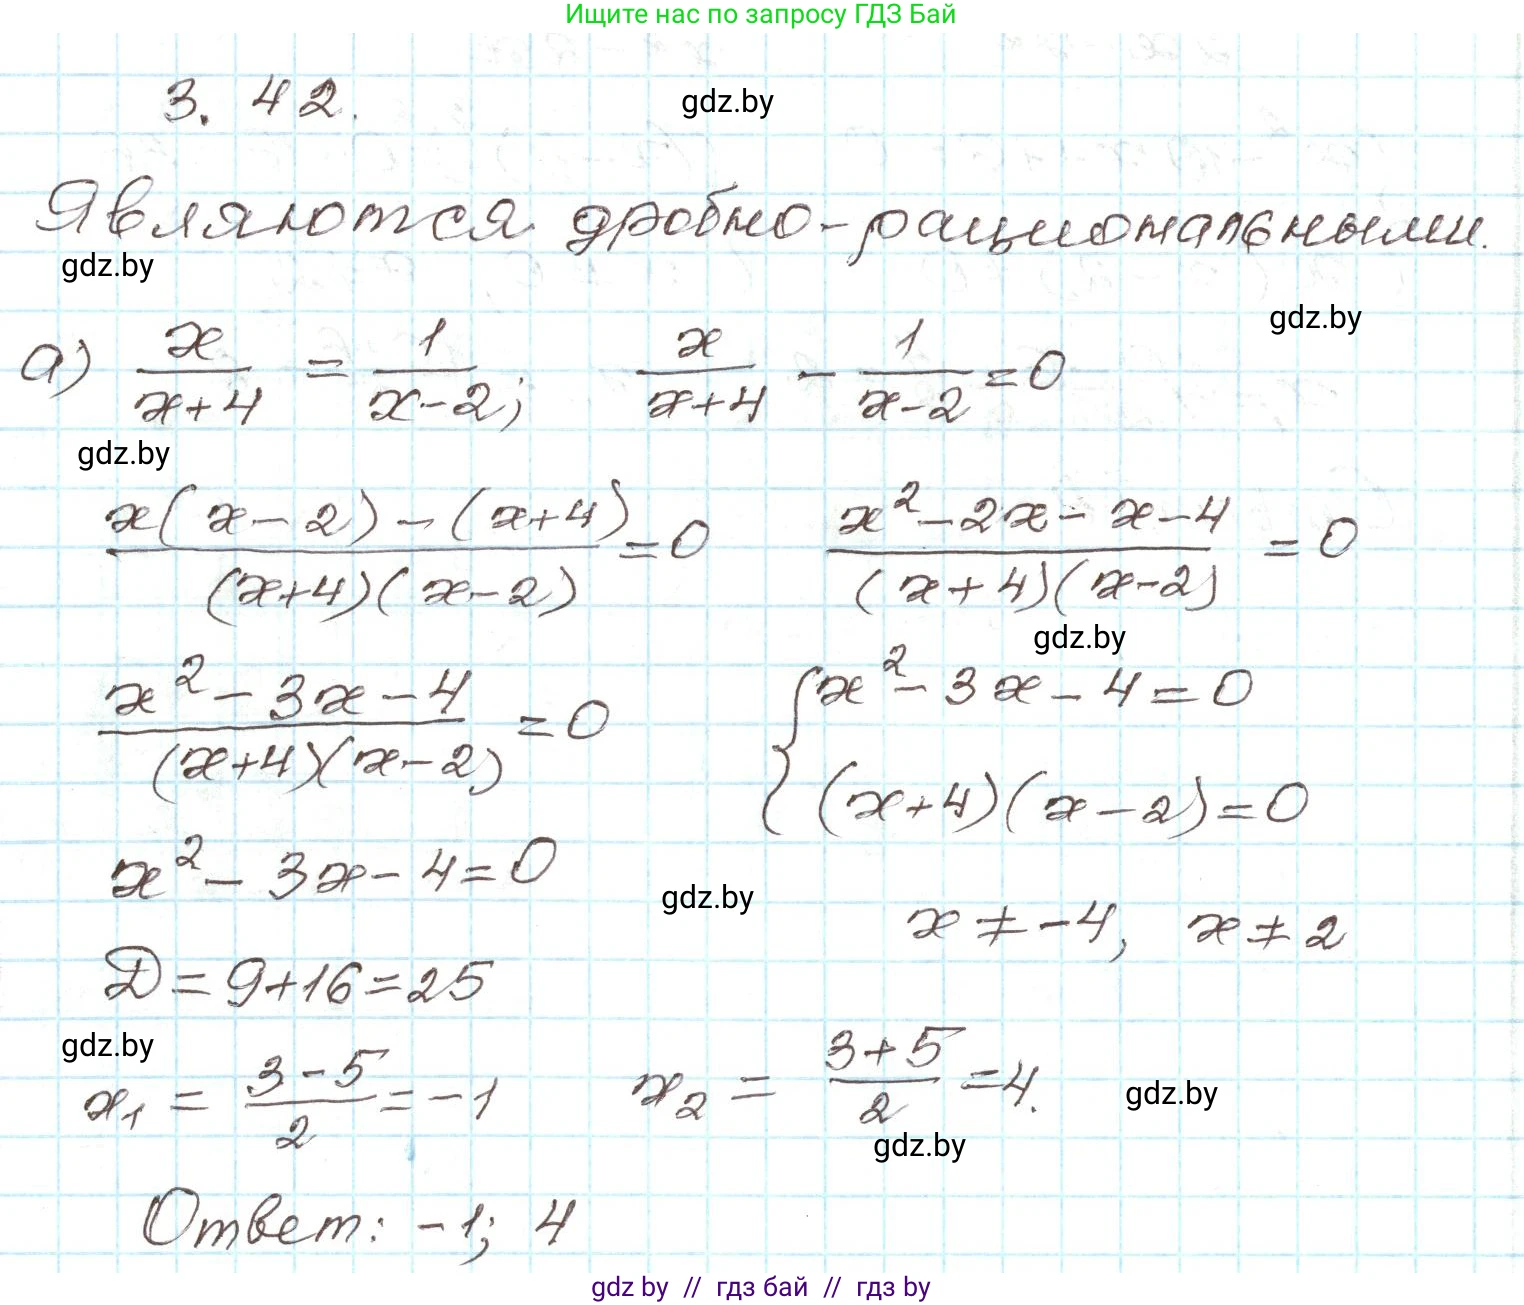 Ищите нас по запросу ГДЗ Бай
3. 42.
gdz.by
Являются дробно-рациональными.
gdz.by
gdz.by
а) x/(x+4) = 1/(x-2); x/(x+4) - 1/(x-2) = 0
gdz.by
(x(x-2)-(x+4))/((x+4)(x-2)) = 0 (x²-2x-x-4)/((x+4)(x-2)) = 0
gdz.by
(x²-3x-4)/((x+4)(x-2)) = 0 { x²-3x-4=0
(x+4)(x-2)=0
x²-3x-4=0
gdz.by
x≠-4, x≠2
D=9+16=25
gdz.by
x₁ = (3-5)/2 = -1 x₂ = (3+5)/2 = 4.
gdz.by
gdz.by
Ответ: -1; 4
gdz by // гдз бай // гдз by